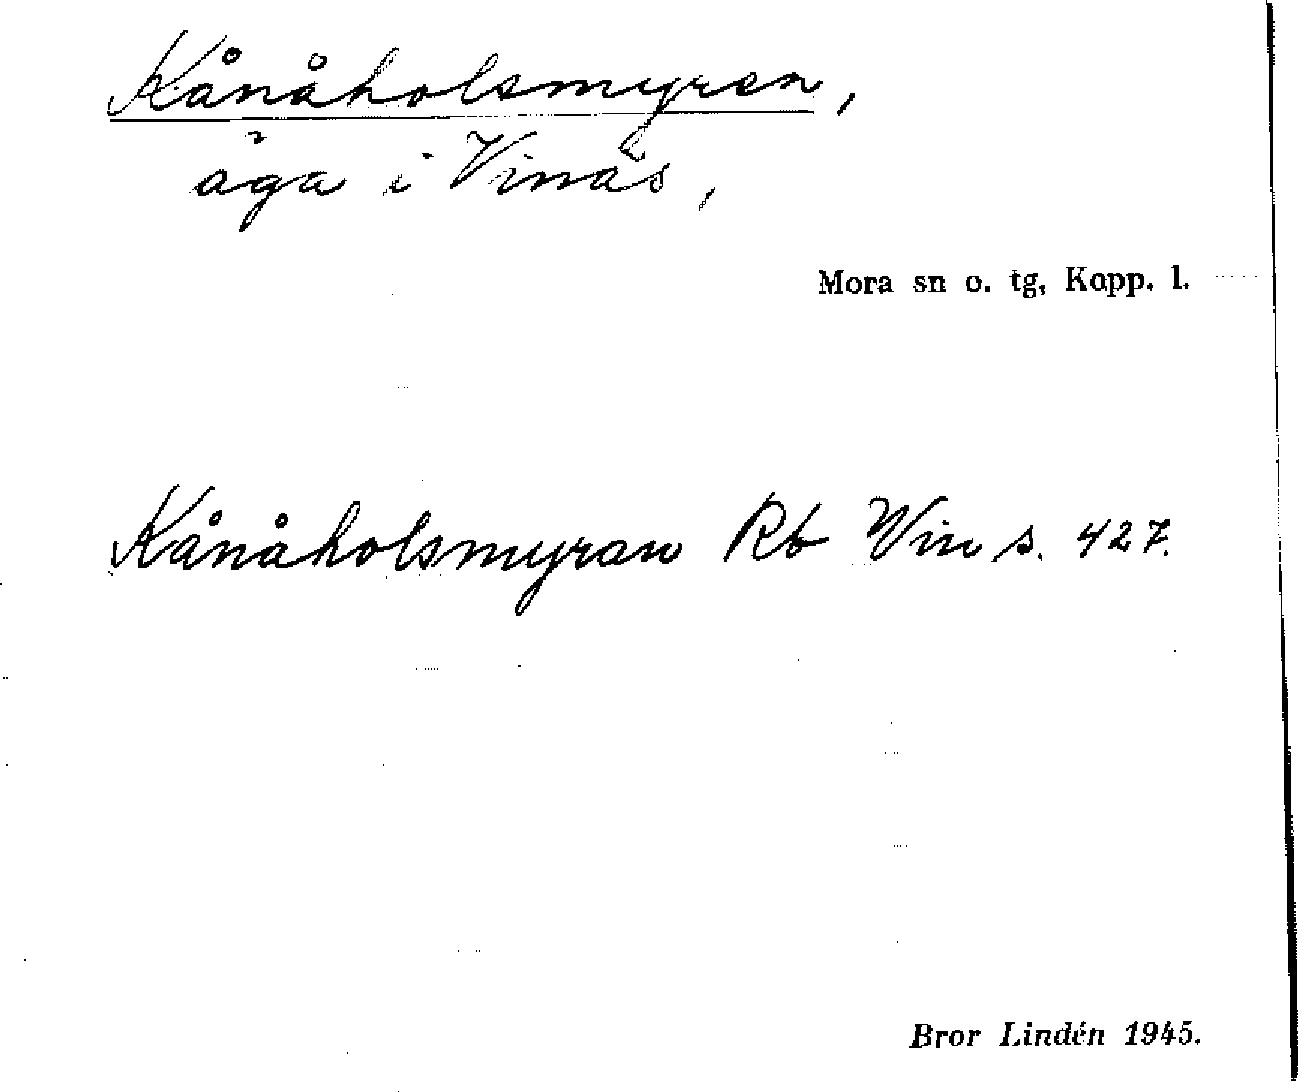 Kånåholsmyren,
äga i Vinäs,
Mora sn o. tg, Kopp. l.
Kånåholsmyran Rb Win s. 427.
Bror Lindén 1945.